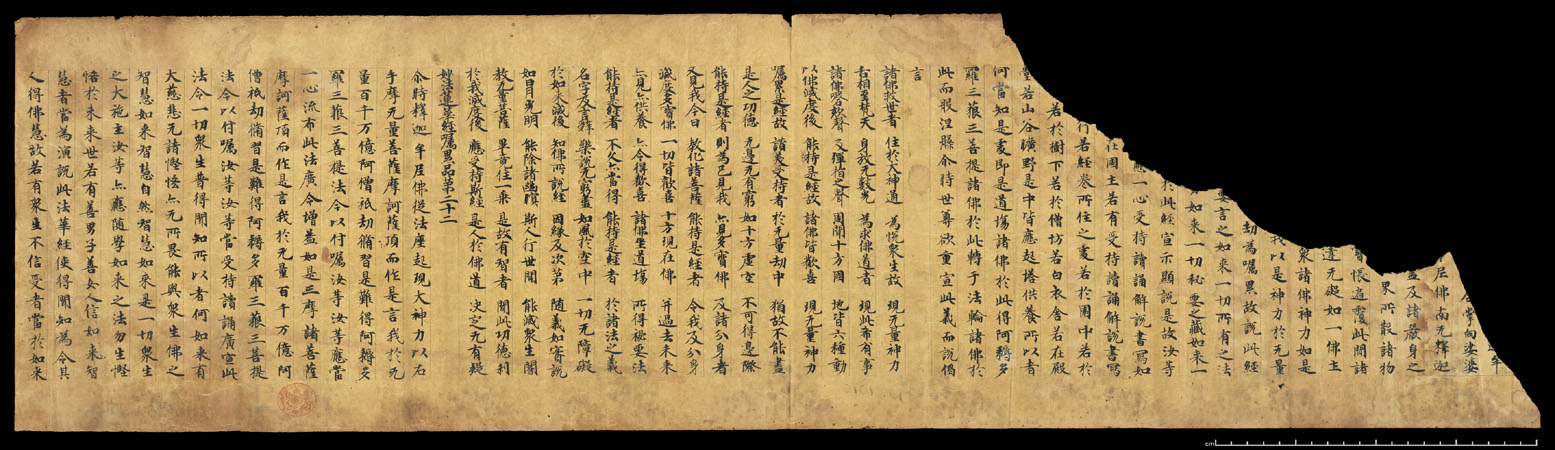 牟
合掌向娑婆
尼佛南无釋迦
蓋及諸嚴身之
界所散諸物
寶帳遍覆此間諸
達无礙如一佛土
衆諸佛神力如是
我以是神力於无量
劫為囑累故說此經
要言之如來一切所有之法
如來一切秘要之藏如來一
於此經宣示顯說是故汝等
應一心受持讀誦解說書寫如
在國土若有受持讀誦解說書寫
行若經卷所住之處若於園中若於
若於樹下若於僧坊若白衣舍若在殿
堂若山谷曠野是中皆應起塔供養所以者
何當知是處即是道場諸佛於此得阿耨多
羅三藐三菩提諸佛於此轉于法輪諸佛於
此而般涅槃尒時世尊欲重宣此義而說偈
言
諸佛救世者 住於大神通 為悅衆生故 現无量神力
舌相至梵天 身放无數光 為求佛道者 現此希有事
諸佛謦欬聲 及彈指之聲 周聞十方國 地皆六種動
以佛滅度後 能持是經故 諸佛皆歡喜 現无量神力
囑累是經故 讚美受持者 於无量劫中 猶故不能盡
是人之功德 无邊无有窮 如十方虛空 不可得邊際
能持是經者 則為已見我 亦見多寶佛 及諸分身者
又見我今日 教化諸菩薩 能持是經者 令我及分身
滅度多寶佛 一切皆歡喜 十方現在佛 并過去未來
亦見亦供養 亦令得歡喜 諸佛坐道場 所得秘要法
能持是經者 不久亦當得 能持是經者 於諸法之義
名字及言辭 樂說无窮盡 如風於空中 一切无障礙
於如來滅後 知佛所說經 因緣及次第 隨義如實說
如日月光明 能除諸幽冥 斯人行世間 能滅衆生闇
教无量菩薩 畢竟住一乘 是故有智者 聞此功德利
於我滅度後 應受持斯經 是人於佛道 決定无有疑
妙法蓮華經囑累品第二十二
尒時釋迦牟尼佛從法座起現大神力以右
手摩无量菩薩摩訶薩頂而作是言我於无
量百千万億阿僧祇劫脩習是難得阿耨多
羅三藐三菩提法今以付囑汝等汝等應當
一心流布此法廣令增益如是三摩諸菩薩
摩訶薩頂而作是言我於无量百千万億阿
僧祇劫脩習是難得阿耨多羅三藐三菩提
法今以付囑汝等汝等當受持讀誦廣宣此
法令一切衆生普得聞知所以者何如來有
大慈悲无諸慳悋亦无所畏能與衆生佛之
智慧如來智慧自然智慧如來是一切衆生
之大施主汝等亦應隨學如來之法勿生慳
悋於未來世若有善男子善女人信如來智
慧者當為演說此法華經使得聞知為令其
人得佛慧故若有衆生不信受者當於如來
cm